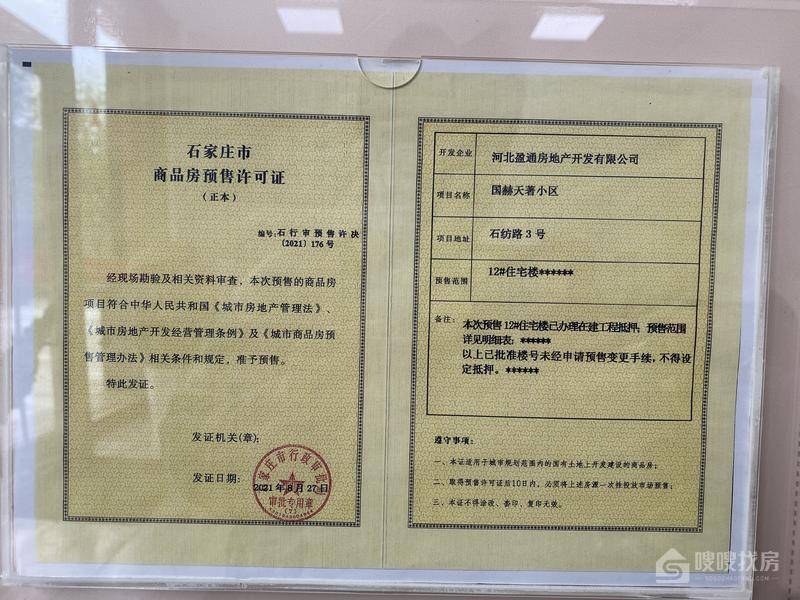 石家庄市
商品房预售许可证
（正本）
编号：石行审预售许决
〔2021〕176号
经现场勘验及相关资料审查，本次预售的商品房
项目符合中华人民共和国《城市房地产管理法》、
《城市房地产开发经营管理条例》及《城市商品房预
售管理办法》相关条件和规定，准予预售。
特此发证。
发证机关(章)：
发证日期：
2021年8月27日
石家庄市行政审批局
审批专用章
(7)
开发企业 河北盈通房地产开发有限公司
项目名称 国赫天著小区
项目地址 石纺路3号
预售范围 12#住宅楼******
备注：
本次预售12#住宅楼已办理在建工程抵押，预售范围
详见明细表；******
以上已批准楼号未经申请预售变更手续，不得设
定抵押。******
遵守事项：
一、本证适用于城市规划范围内的国有土地上开发建设的商品房；
二、取得预售许可证后10日内，必须将上述房源一次性投放市场预售；
三、本证不得涂改、套印、复印无效。
嗖嗖找房